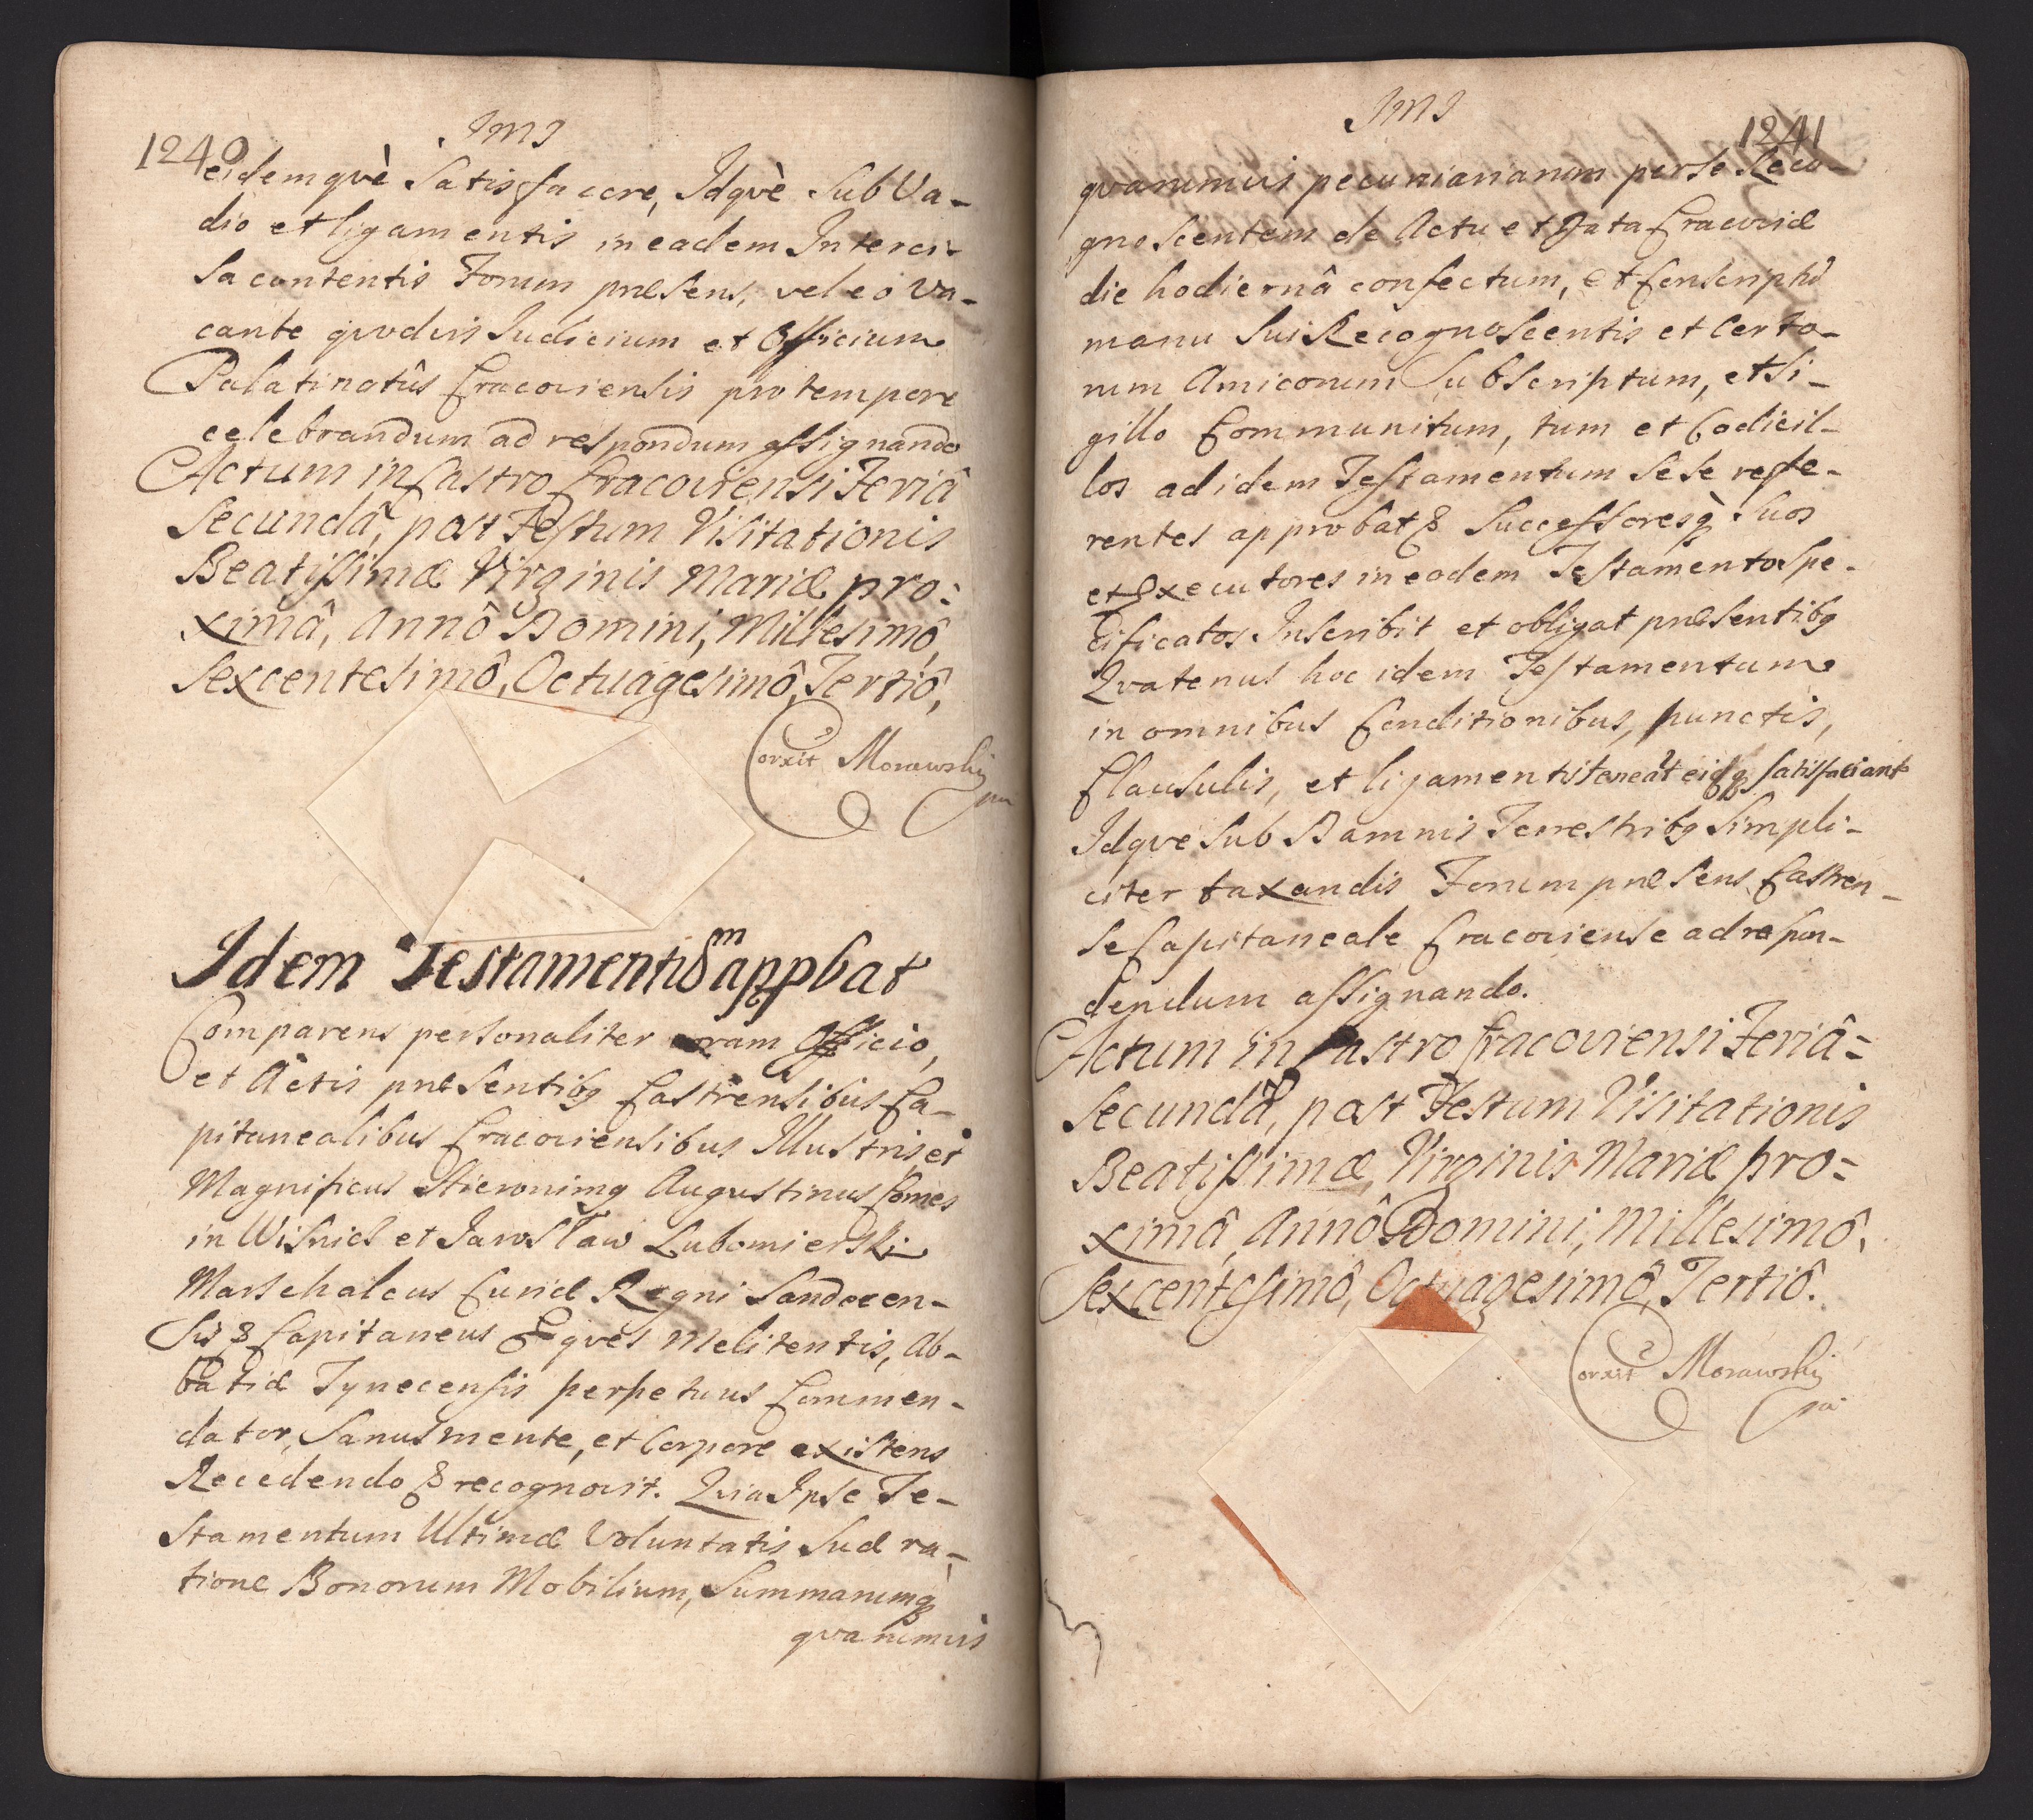 1240
JMJ
eidemqvè Satisfacere, Idqvè Sub Va-
dio et ligamentis in eadem Interci-
sa contentis Forum præsens, vel eo va-
cante qvodvis Iudicium et Officium
Palatinatûs Cracoviensis pro tempore
celebrandum ad respondum assignando
Actum in Castro Cracoviensi Feriâ
Secundâ, post Festum Visitationis
Beatissimæ Virginis Mariæ pro:
ximâ, Annô Domini, Millesimô,
Sexcentesimô, Octuagesimô, Tertiô,
Corxit Morawsky
mp
Idem Testamentũm appbat
Comparens personaliter coram Officio,
et Actis præsentibq Castrensibus Ca-
pitanealibus Cracoviensibus Illustris et
Magnificus Hieronimq Augustinus Comes
in Wisnicz et Jarosław Lubomierski
Marschalcus Curiæ Regni Sandecen-
sis & Capitaneus Eqves Melitentis, Ab-
batiæ Tynecensis perpetuus Commen-
dator, Sanus mente, et Corpore existens
Recedendo & recognovit. Qvia Ipse Te-
stamentum Ultimæ Voluntatis Suæ ra-
tione Bonorum Mobilium, Summarumq
qvarumvis
JMJ
1241
qvarumvis pecuniariarum per se Reco-
gnoscentem de Actu et Data Cracoviæ
die hodiernâ confectum, et Conscriptũ
manu Sui Recognoscentis et Certo-
rum Amicorum Subscriptum, et Si-
gillo Communitum, tum et Codicil-
los ad idem Testamentum Sese refe-
rentes approbat & Successoresq̀ Suos
et Executores in eodem Testamento Spe-
cificatos Inscribit et obligat præsentibq
Qvatenus hoc idem Testamentum
in omnibus Conditionibus, punctis,
Clausulis, et ligamentis teneãt eidq satisfaciant
Idqve Sub Damnis Terrestribq Simpli-
citer taxandis Forum præsens Castren-
se Capitaneale Cracoviense ad respon-
dendum assignando.
Actum in Castro Cracoviensi Feriâ=
Secundâ, post Festum Visitationis
Beatissimæ Virginis Mariæ pro=
ximâ, Annô Domini, Millesimô,
Sexcentesimô, Octuagesimô, Tertiô.
Corxit Morawsky